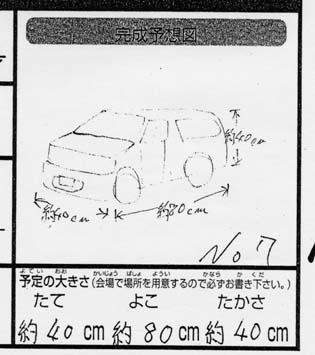 完成予想図
約40cm
約40cm
約80cm
No 7
予定の大きさ(会場で場所を用意するので必ずお書き下さい。)
たて よこ たかさ
約40cm 約80cm 約40cm